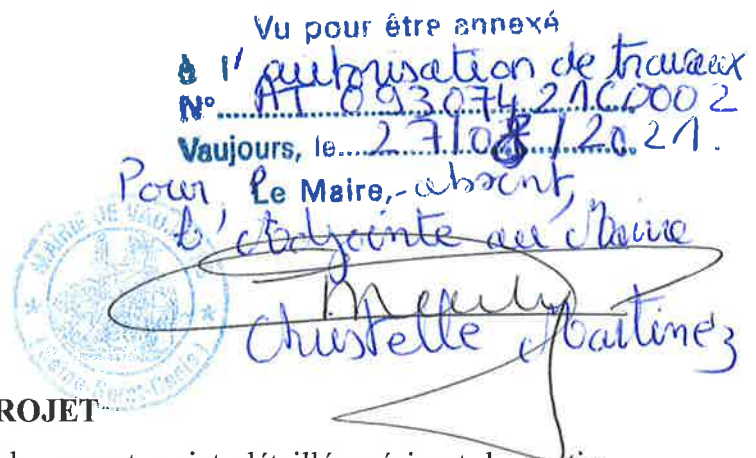 Vu pour être annexé
à l'autorisation de travaux
N° AT 093074 21C0002
Vaujours, le 27/08/2021.
Pour Le Maire, absent,
l'Adjointe au Maire
Christelle Martinez
MAIRIE DE VAUJOURS
(Seine-Saint-Denis)
ROJET